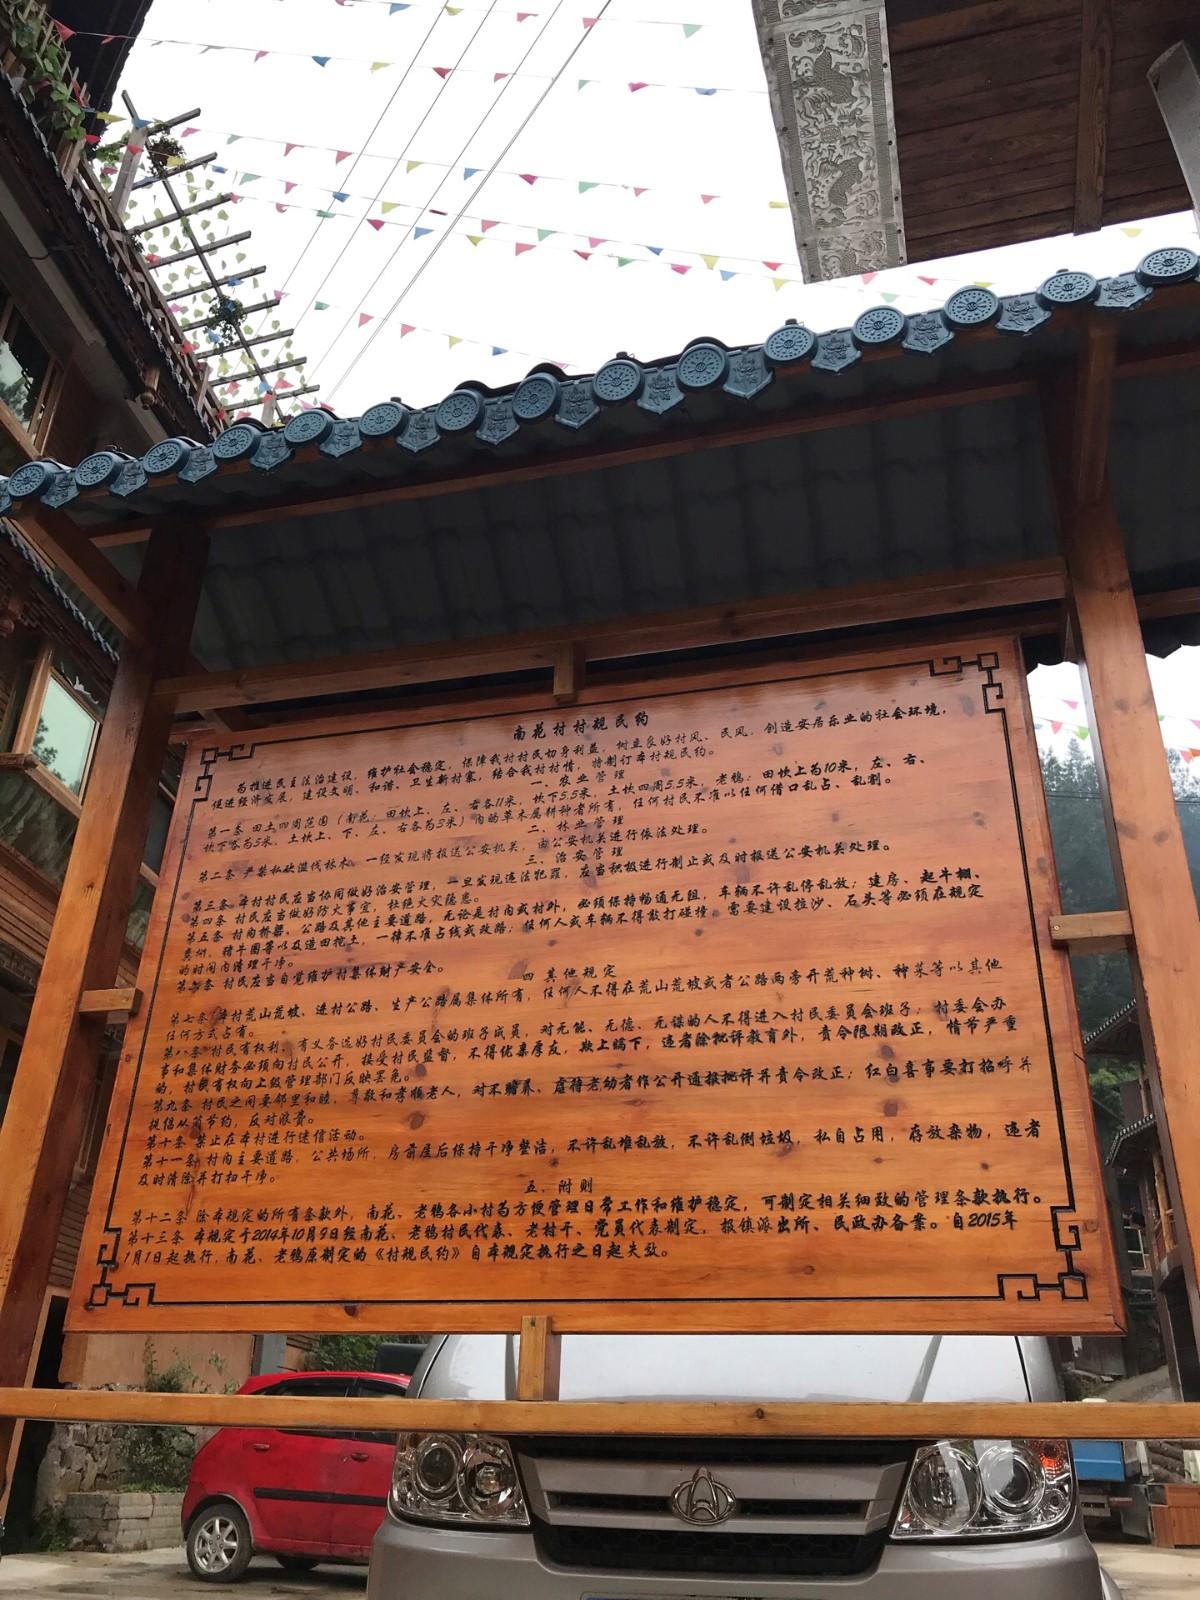 南花村村规民约
为推进民主法治建设，维护社会稳定，保障我村村民切身利益，树立良好村风、民风，创造安居乐业的社会环境，
促进经济发展，建设文明、和谐、卫生新村寨，结合我村村情，特制订本村规民约。
一、农业管理
第一条 田土四周范围（南花：田坎上、左、右各11米，坎下5.5米，土坎四周5.5米，老鸭：田坎上为10米，左、右、
坎下各为5米，土坎上、下、左、右各为3米）内的草木属耕种者所有，任何村民不准以任何借口乱占、乱割。
二、林业管理
第二条 严禁私砍滥伐林木，一经发现将报送公安机关，由公安机关进行依法处理。
三、治安管理
第三条 本村村民应当协同做好治安管理，一旦发现违法犯罪，应当积极进行制止或及时报送公安机关处理。
第四条 村民应当做好防火事宜，杜绝火灾隐患。
第五条 村内桥梁、公路及其他主要道路，无论是村内或村外，必须保持畅通无阻，车辆不许乱停乱放；建房、起牛棚、
猪牛圈等以及造田挖土，一律不准占线或改路；任何人或车辆不得敲打碰撞。需要建设拉沙、石头等必须在规定
的时间内清理干净。
第六条 村民应当自觉维护村集体财产安全。
四 其他规定
第七条 本村荒山荒坡、进村公路、生产公路属集体所有，任何人不得在荒山荒坡或者公路两旁开荒种树、种菜等以其他
任何方式占有。
第八条 村民有权利、有义务选好村民委员会的班子成员，对无能、无德、无谋的人不得进入村民委员会班子；村委会办
事和集体财务必须向村民公开，接受村民监督，不得优亲厚友，欺上瞒下，违者除批评教育外，责令限期改正，情节严重
的，村民有权向上级管理部门反映罢免。
第九条 村民之间要邻里和睦，尊敬和孝顺老人，对不赡养、虐待老幼者作公开通报批评并责令改正；红白喜事要打招呼并
提倡从简节约，反对浪费。
第十条 禁止在本村进行迷信活动。
第十一条 村内主要道路，公共场所，房前屋后保持干净整洁，不许乱堆乱放，不许乱倒垃圾，私自占用，存放杂物，违者
及时清除并打扫干净。
五、附则
第十二条 除本规定的所有条款外，南花、老鸭各小村为方便管理日常工作和维护稳定，可制定相关细致的管理条款执行。
第十三条 本规定于2014年10月9日经南花、老鸭村民代表、老村干、党员代表制定，报镇派出所、民政办备案。自2015年
1月1日起执行，南花、老鸭原制定的《村规民约》自本规定执行之日起失效。